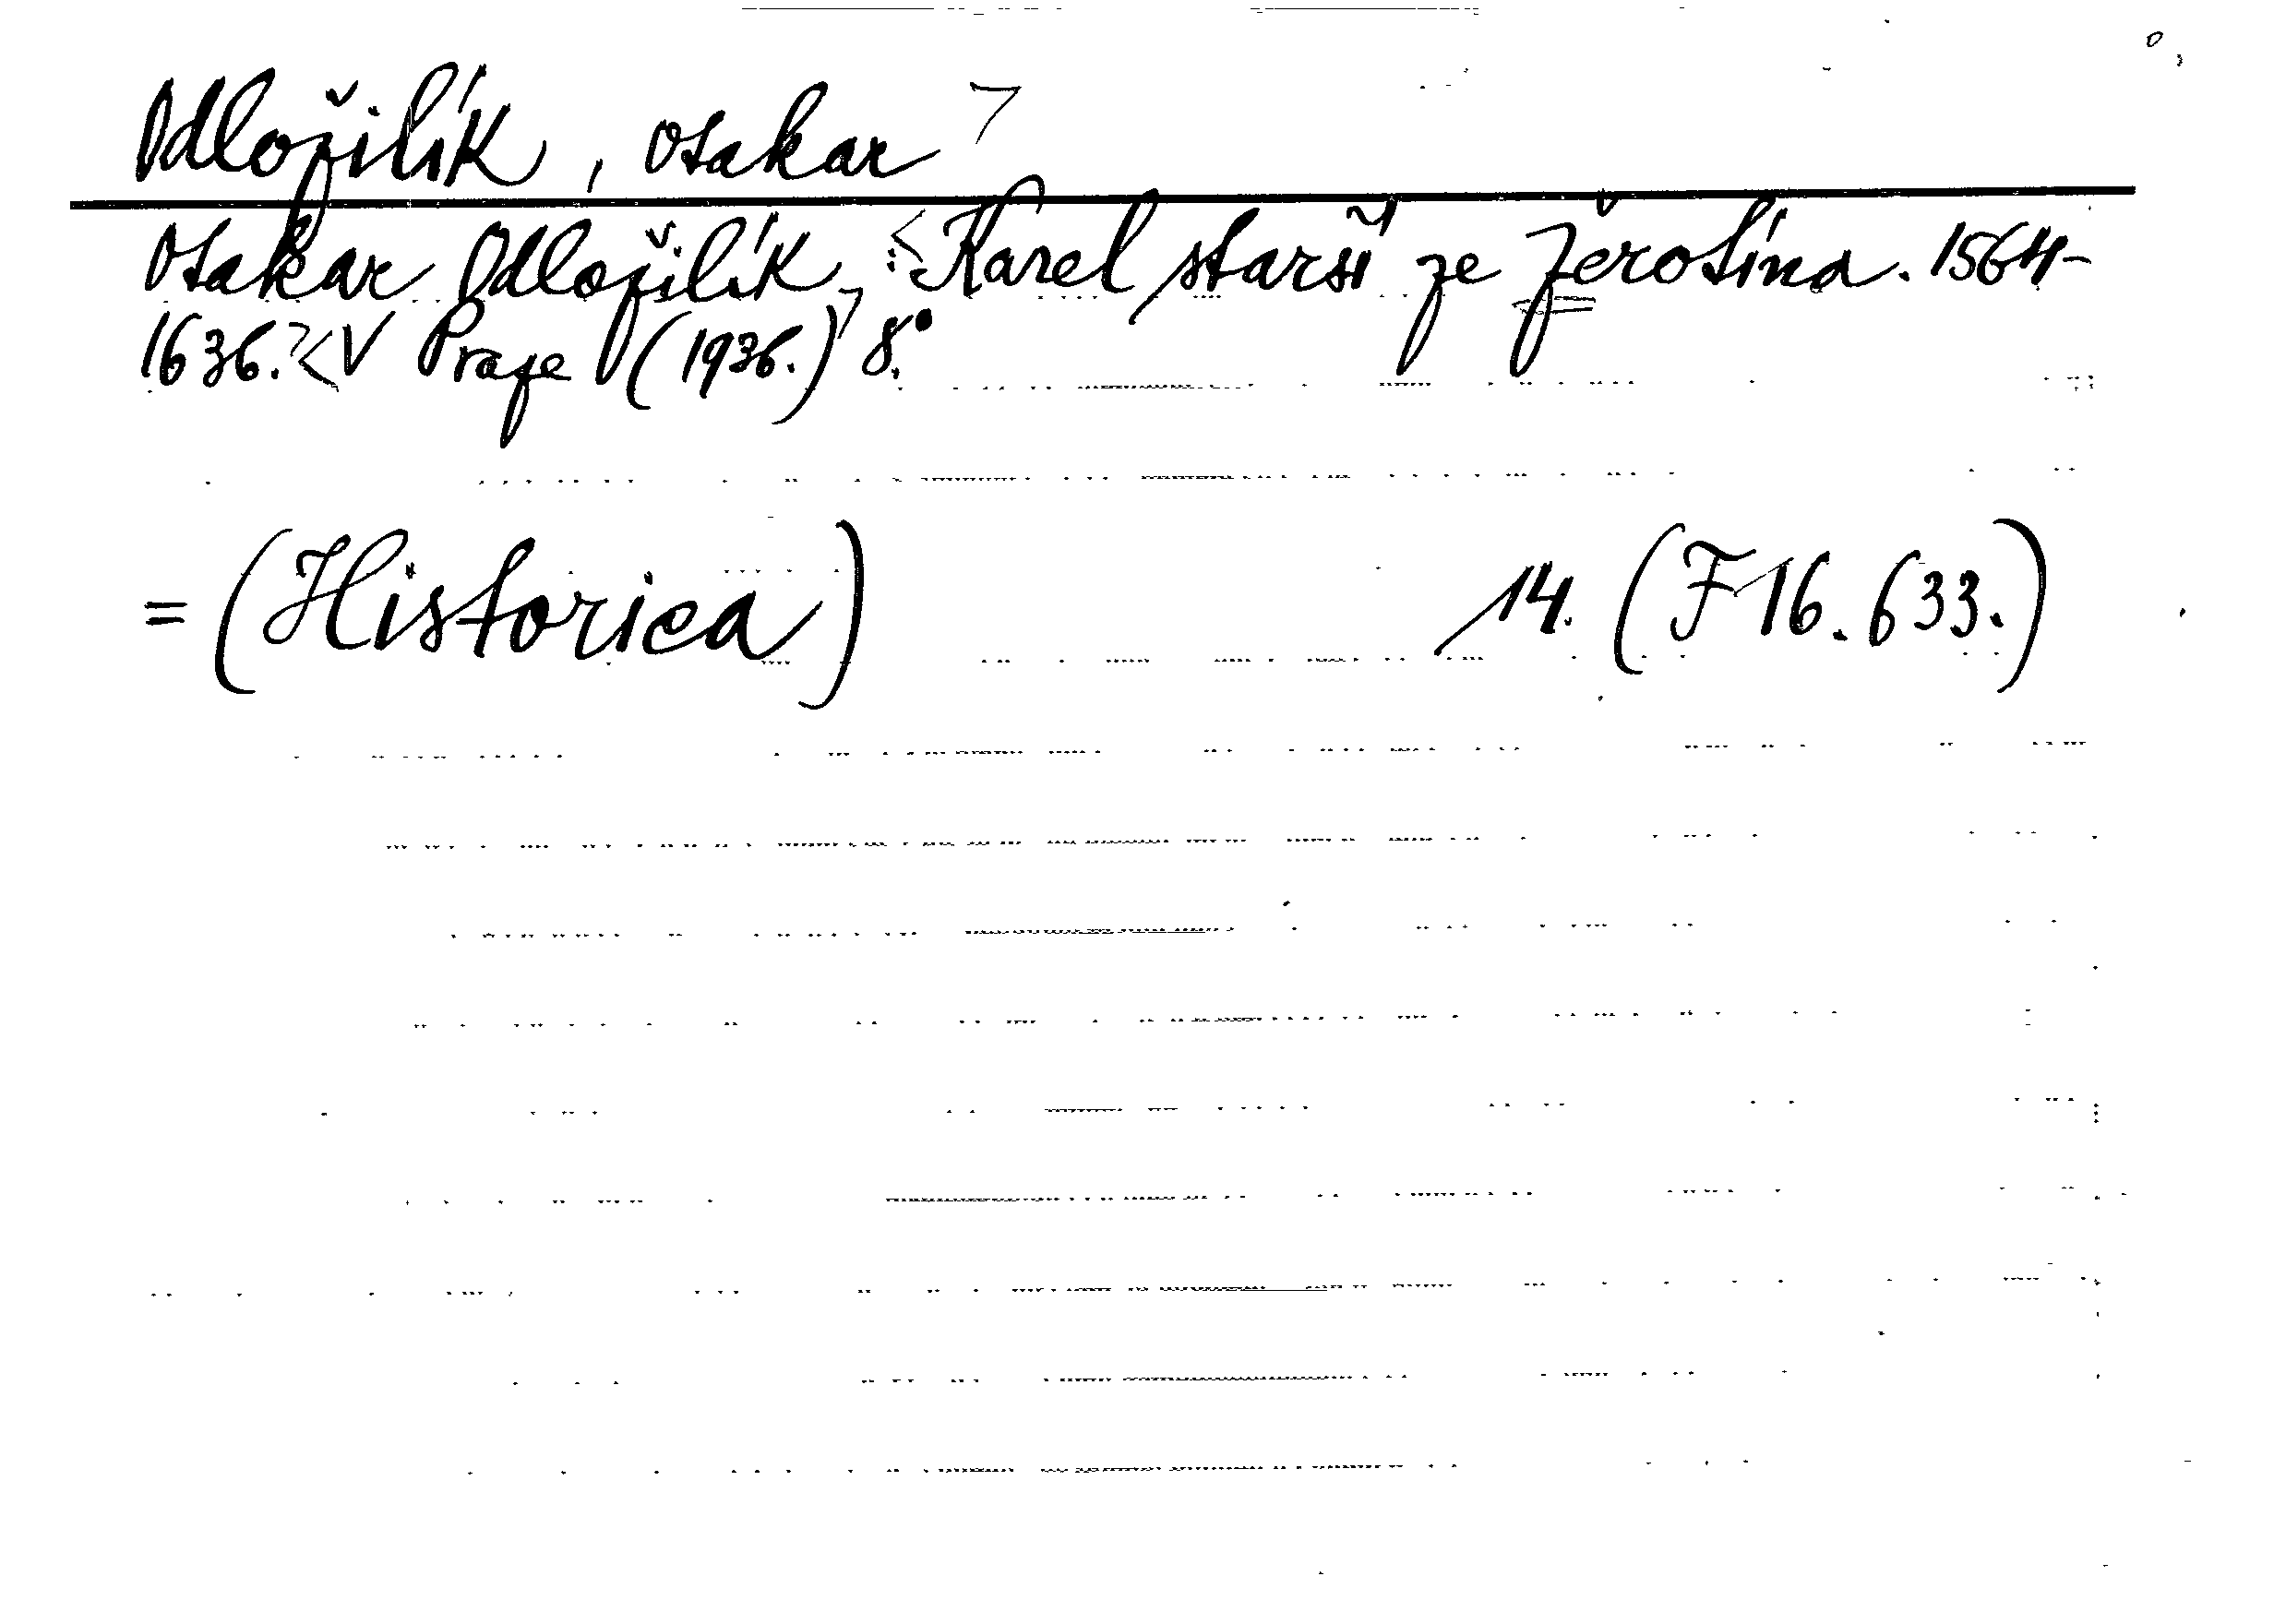 Odložilík, Otakar
Otakar Odložilík, : Karel starší ze Žerotína. 1564-
1636. V Praze (1936.) 8.°
= (Historica) 14. (F16.633.)